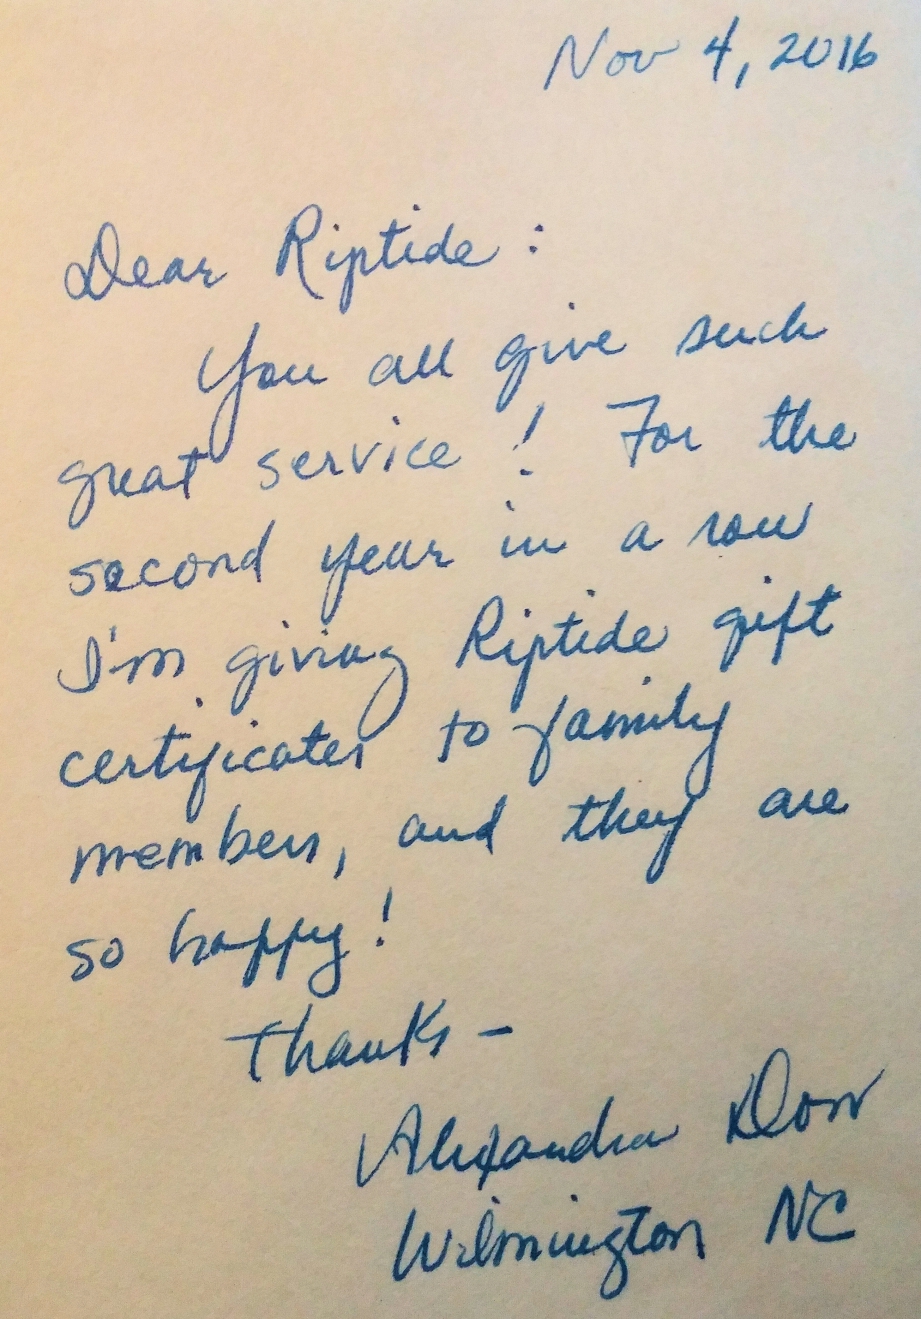 Nov 4, 2016
Dear Riptide:
You all give such
great service! For the
second year in a row
I'm giving Riptide gift
certificates to family
members, and they are
so happy!
Thanks -
Alexandra Dorr
Wilmington NC